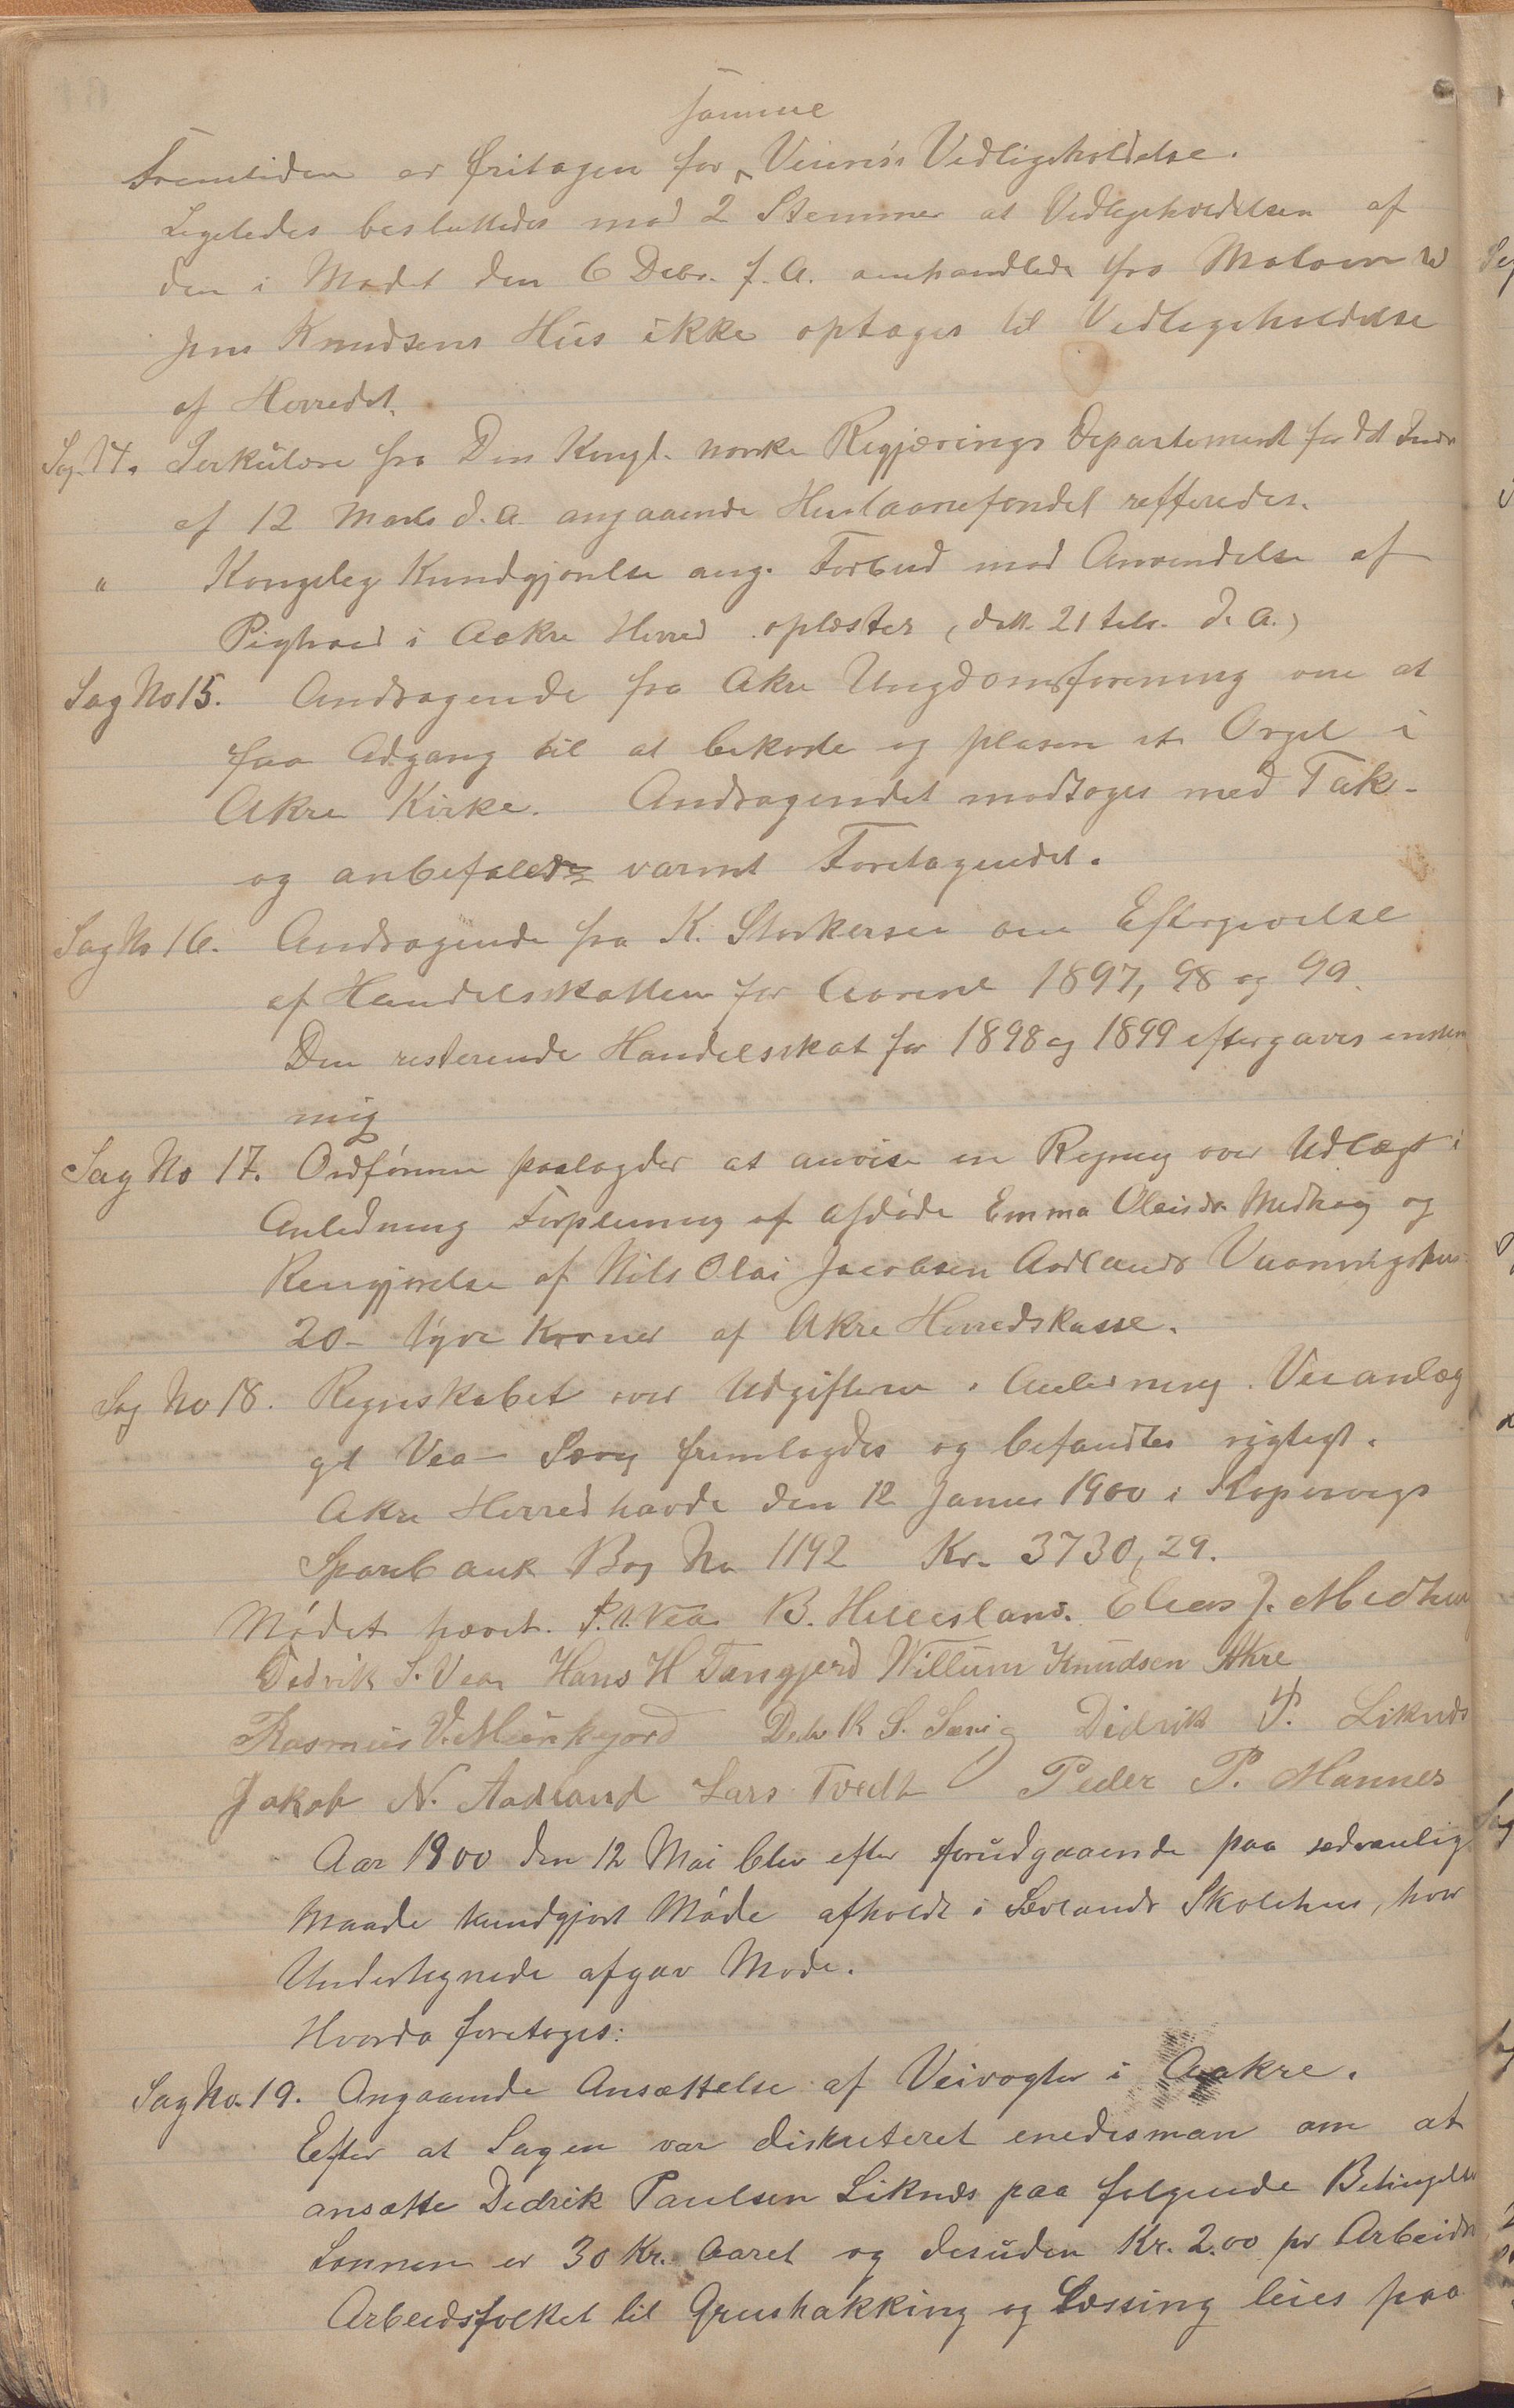 samme
Fremtiden er fritagen for Veiens Vedligeholdelse.
Ligeledes besluttedes mod 2 Stemmer at Vedligeholdelsen af
den i Mødet den 6 Debr. f. A. omhandlede fra
Jens Knudsens Hus ikke optages til Vedligeholdelse
af Herredet.
Sag 14. Serkulære fra Den Kongl. norske Regjerings Departement for det Indre
af 12 Marts d. A. angaaende Huslaanefondet refferedes.
" Kongelig Kundgjørelse ang. Forbud mod Anvendelse af
Pigtraad i Aakre Herred oplæstes (datt. 21 Febr. d. A.)
Sag No 15. Andragende fra Akre Ungdomsforening om at
faa Adgang til at bekoste og plasere et Orgel i
Akre Kirke. Andragendet modtoges med Tak-
og anbefaledes varmt Foretagendet.
Sag No 16. Andragende fra K. Storkersen om Eftergivelse
af Handelsskatten for Aarene 1897, 98 og 99.
Den resterende Handelsskat for 1898 og 1899 eftergaves enstem
mig
Sag No 17. Ordføreren paalagdes at anvise en Regning over Udlægt i
Anledning Forpleining af afdøde Emma Olaisdr. Medhøg og
Rengjørelse af Nils Olai Jacobsen Aadlands Vaaningshus
20- tyve Kroner af Akre Herredskasse.
Sag No 18. Regnskabet over Udgifterne i Anledning Veianlæg
get Vea- Sævig fremlagdes og befandtes rigtigt.
Akre Herred havde den 12 Januar 1900 i Kopervigs
Sparebank Bog No 1192 Kr. 3730,29.
Mødet hævet. Vea B. Hillesland. Elias J. Medhug
Didrik S. Vea Hans H Tangjerd Willum Knudsen Akre
Rasmus V. Munkejord Dedrik S. Sævig Didrik P. Liknes
Jakob N. Aadland Lars Tvedt Peder P. Mannes
Aar 1900 den 12 Mai blev efter forudgaaende paa sedvanlig
Maade kundgjort Møde afholdt i Sævlands Skolehus, hvor
Undertegnede afgav Møde.
Hvorda foretoges:
Sag No. 19. Angaaende Ansættelse af Veivogter i Aakre.
Efter at Sagen var diskuteret enedes man om at
ansætte Didrik Paulsen Liknes paa følgende Betingelser
Lønnen er 30 Kr. Aaret og desuden Kr. 2.00 pr Arbeidsd
Arbeidsfolket til Grushakking og Læssing leies paa